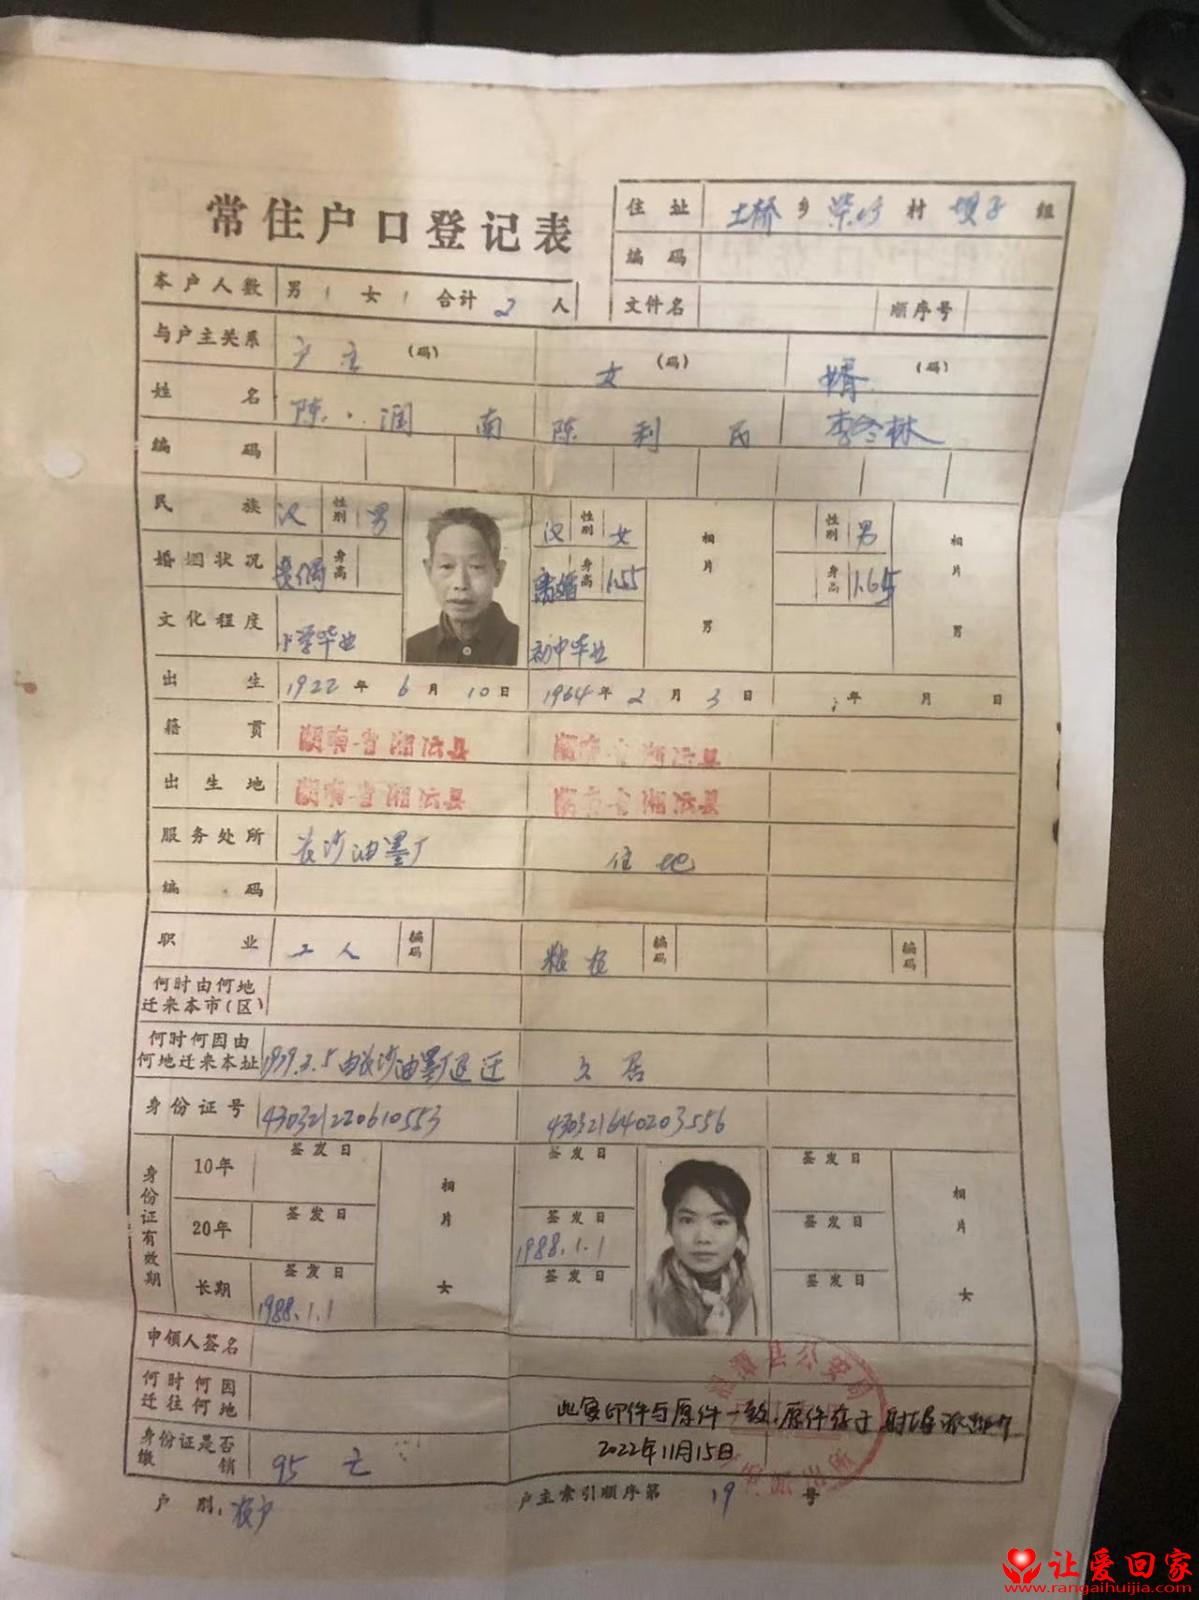 常住户口登记表
住址 土桥 乡 柴 村 坝子 组
编码
文件名 顺序号
本户人数 男 1 女 1 合计 2 人
与户主关系 户主 (码) 女 (码) 婿 (码)
姓名 陈润南 陈利民 李冬林
编码
民族 汉 性别 男 汉 性别 女 性别 男
婚姻状况 丧偶 身高 离婚 身高 1.55 身高 1.65
文化程度 小学毕业 初中毕业
相片 男 相片 男
出生 1922年6月10日 1964年2月3日 年 月 日
籍贯 湖南省湘潭县 湖南省湘潭县
出生地 湖南省湘潭县 湖南省湘潭县
服务处所 长沙油墨厂 住地
编码
职业 工人 编码 粮农 编码 编码
何时由何地迁来本市(区)
何时何因由何地迁来本址 由长沙油墨厂退迁 久居
身份证号 430321220610553 430321640203556
身份证有效期
10年 签发日 签发日 签发日
20年 签发日 签发日 1988.1.1 签发日
长期 签发日 1988.1.1 签发日 签发日
相片 女 相片 女
申领人签名
何时何因迁往何地
此复印件与原件一致,原件存于射埠派出所
2022年11月15日
身份证是否缴销 95 亡
湘潭县公安局
户别: 农户 户主索引顺序第 19 号
让爱回家
www.rangaihuijia.com